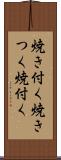 焼き付く焼き
つく焼付く